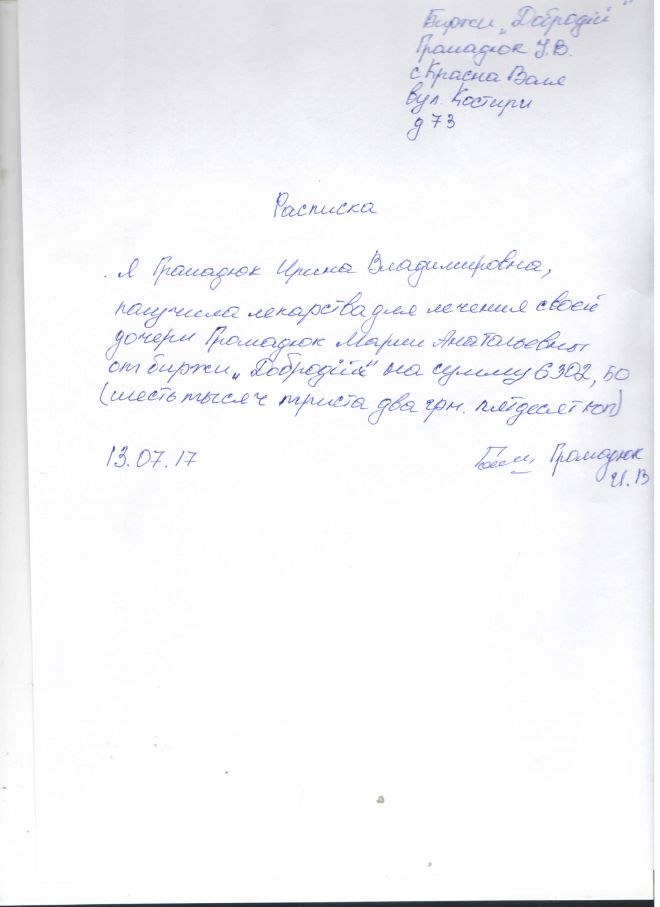 Биржи „Добродій"
Грамадюк І.В.
с Красна Воля
вул. Костири
д 73
Расписка
Я Грамадюк Ирина Владимировна,
получила лекарства для лечения своей
дочери Грамадюк Марии Анатольевны
от биржи „Добродій" на сумму 6302,50
(шесть тысяч триста два грн. пятдесят коп)
13.07.17
Грамадюк
И.В